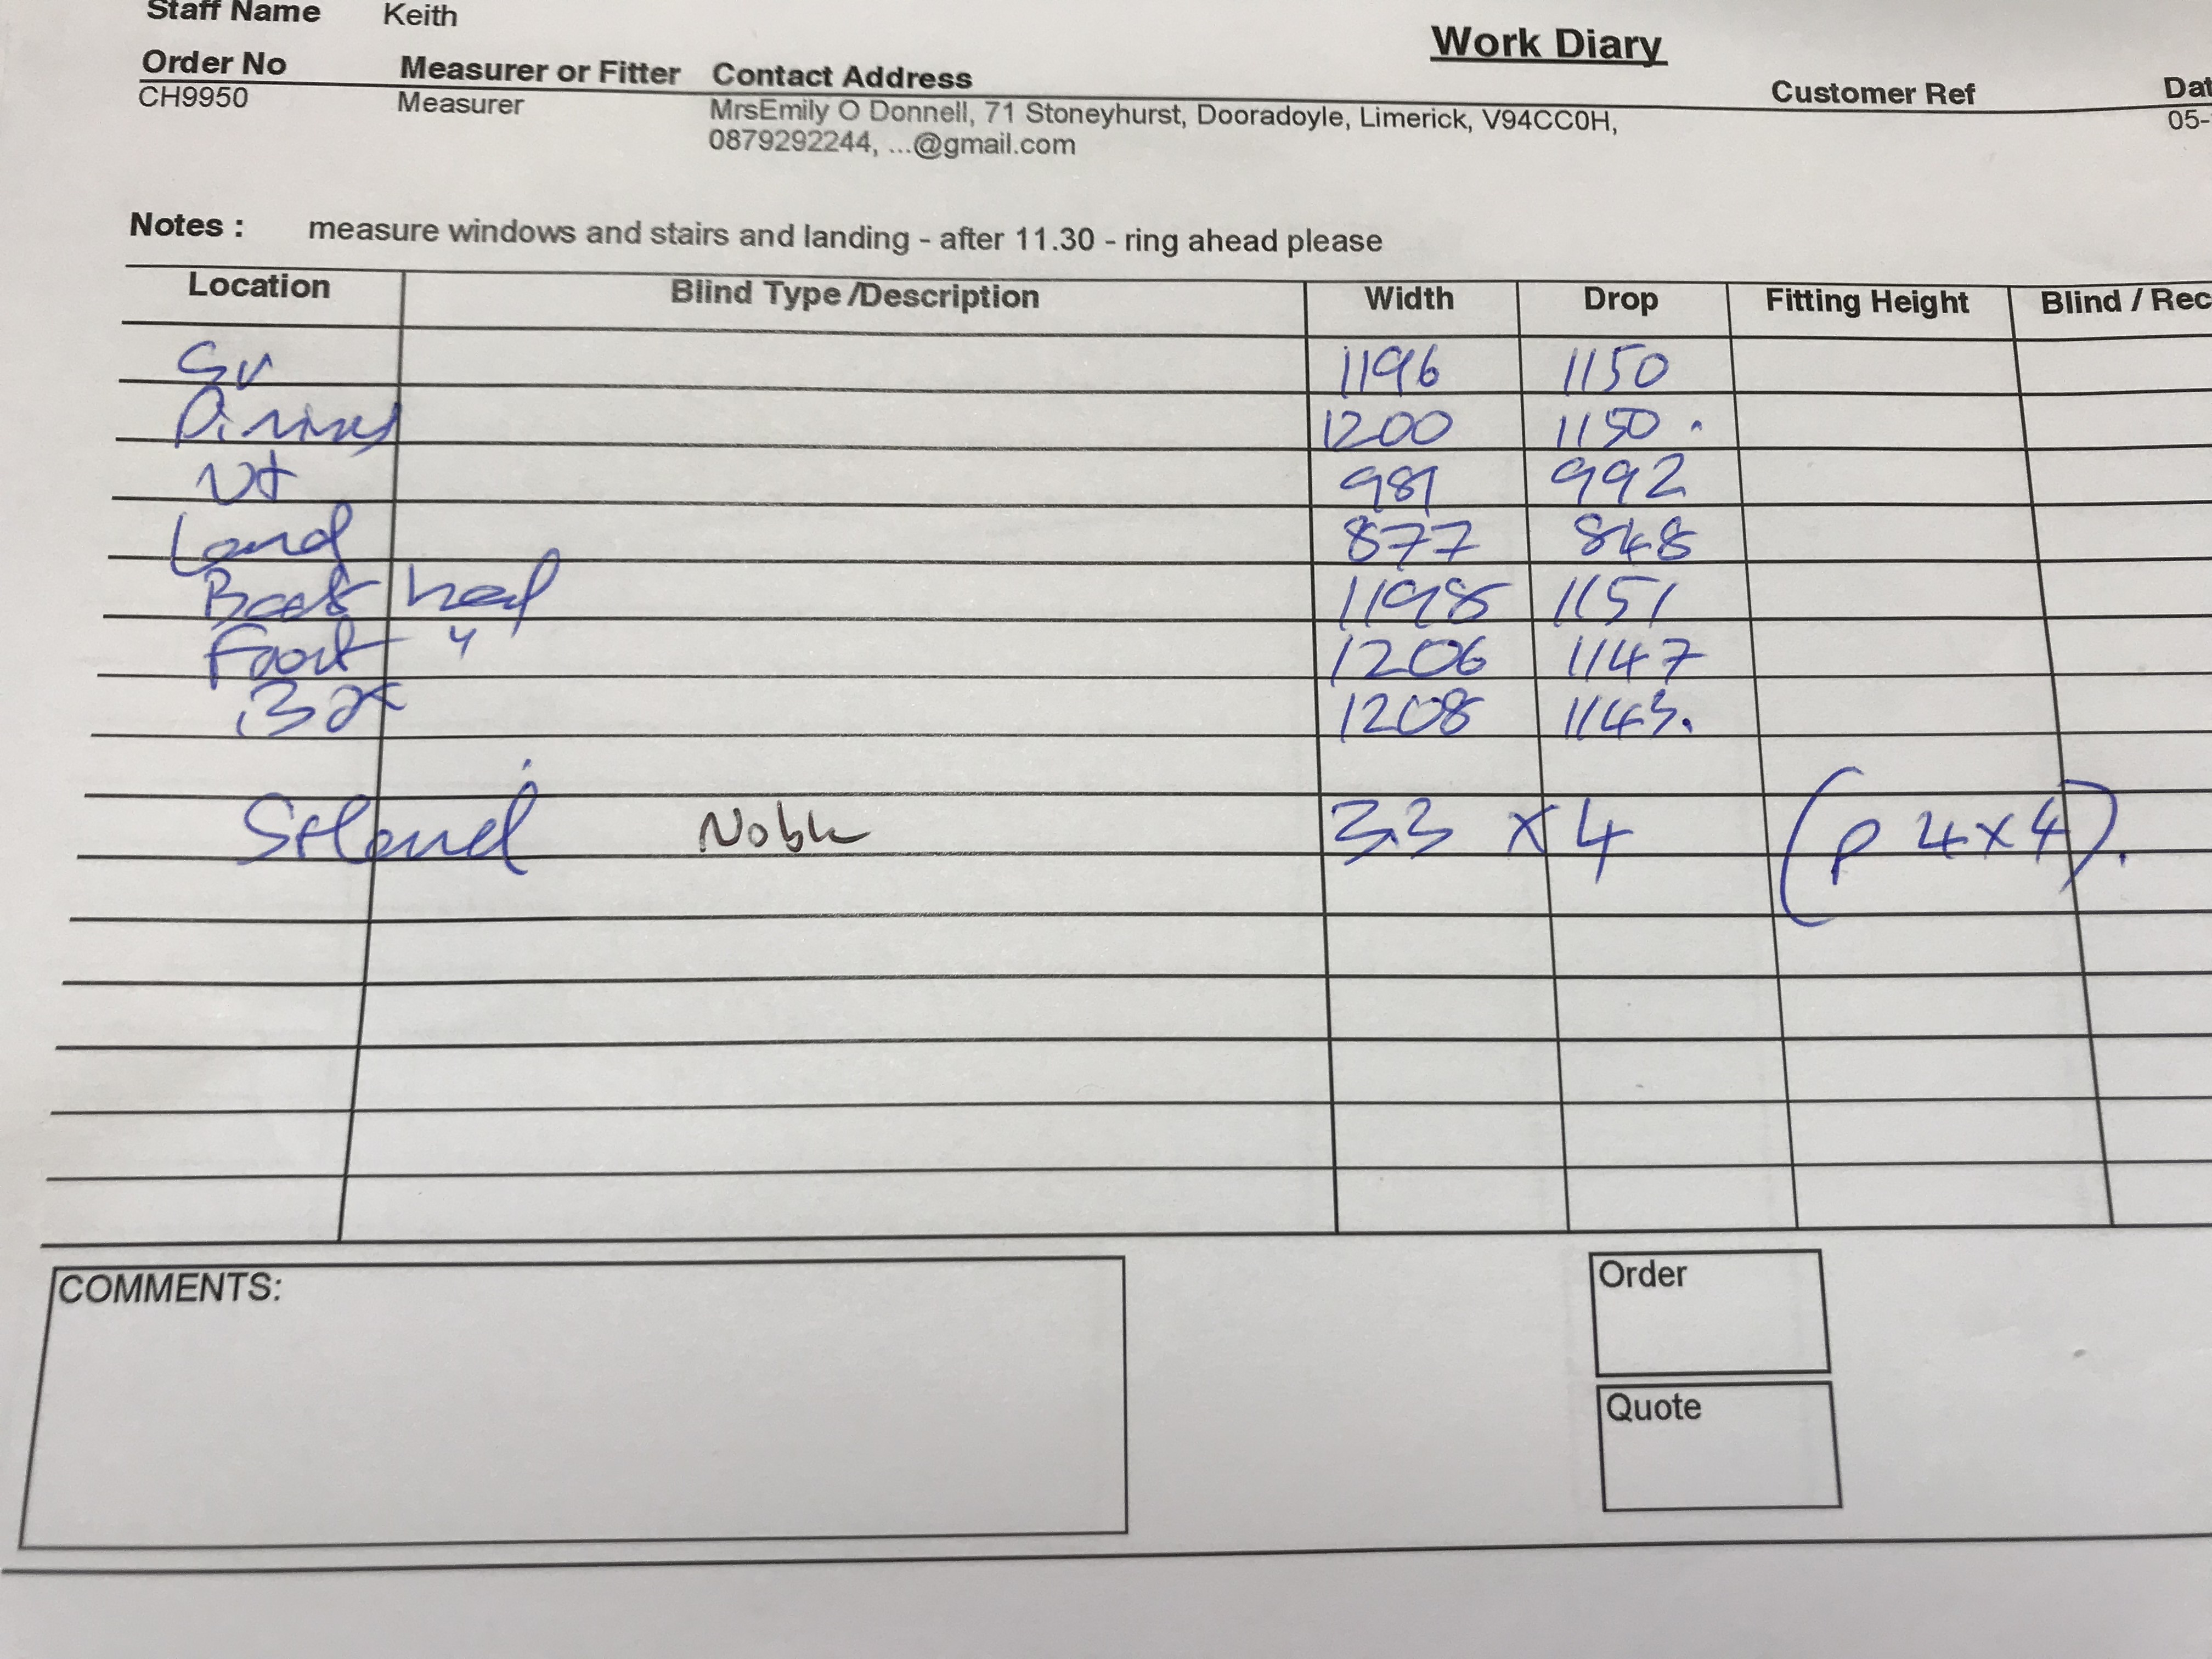 Staff Name Keith
Work Diary
Order No Measurer or Fitter Contact Address Customer Ref Dat
CH9950 Measurer MrsEmily O Donnell, 71 Stoneyhurst, Dooradoyle, Limerick, V94CC0H, 05-
0879292244, ...@gmail.com
Notes : measure windows and stairs and landing - after 11.30 - ring ahead please
Location Blind Type /Description Width Drop Fitting Height Blind / Rec
1196 1150
Dining 1200 1150.
Ut 989 992
Land 877 848
Back 1198 1151
Front " 1206 1147
1208 1143.
Stland Noble 3.3 x 4 (P 4x4).
COMMENTS:
Order
Quote